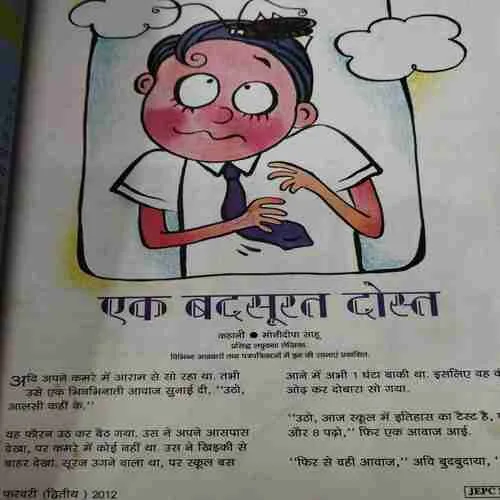 एक बदसूरत दोस्त
कहानी ● मोनीदीपा साहू
प्रसिद्ध लघुकथा लेखिका.
विभिन्न अखबारों तथा पत्रपत्रिकाओं में इन की रचनाएं प्रकाशित.
अवि अपने कमरे में आराम से सो रहा था. तभी
उसे एक भिनभिनाती आवाज सुनाई दी, ‘‘उठो,
आलसी कहीं के.’’
वह फौरन उठ कर बैठ गया. उस ने अपने आसपास
देखा, पर कमरे में कोई नहीं था. उस ने खिड़की से
बाहर देखा. सूरज उगने वाला था, पर स्कूल बस
आने में अभी 1 घंटा बाकी था. इसलिए वह
ओढ़ कर दोबारा सो गया.
‘‘उठो, आज स्कूल में इतिहास का टेस्ट है,
और 8 पढ़ो,’’ फिर एक आवाज आई.
‘‘फिर से वही आवाज,’’ अवि बुदबुदाया,
फरवरी (द्वितीय) 2012
JEPC